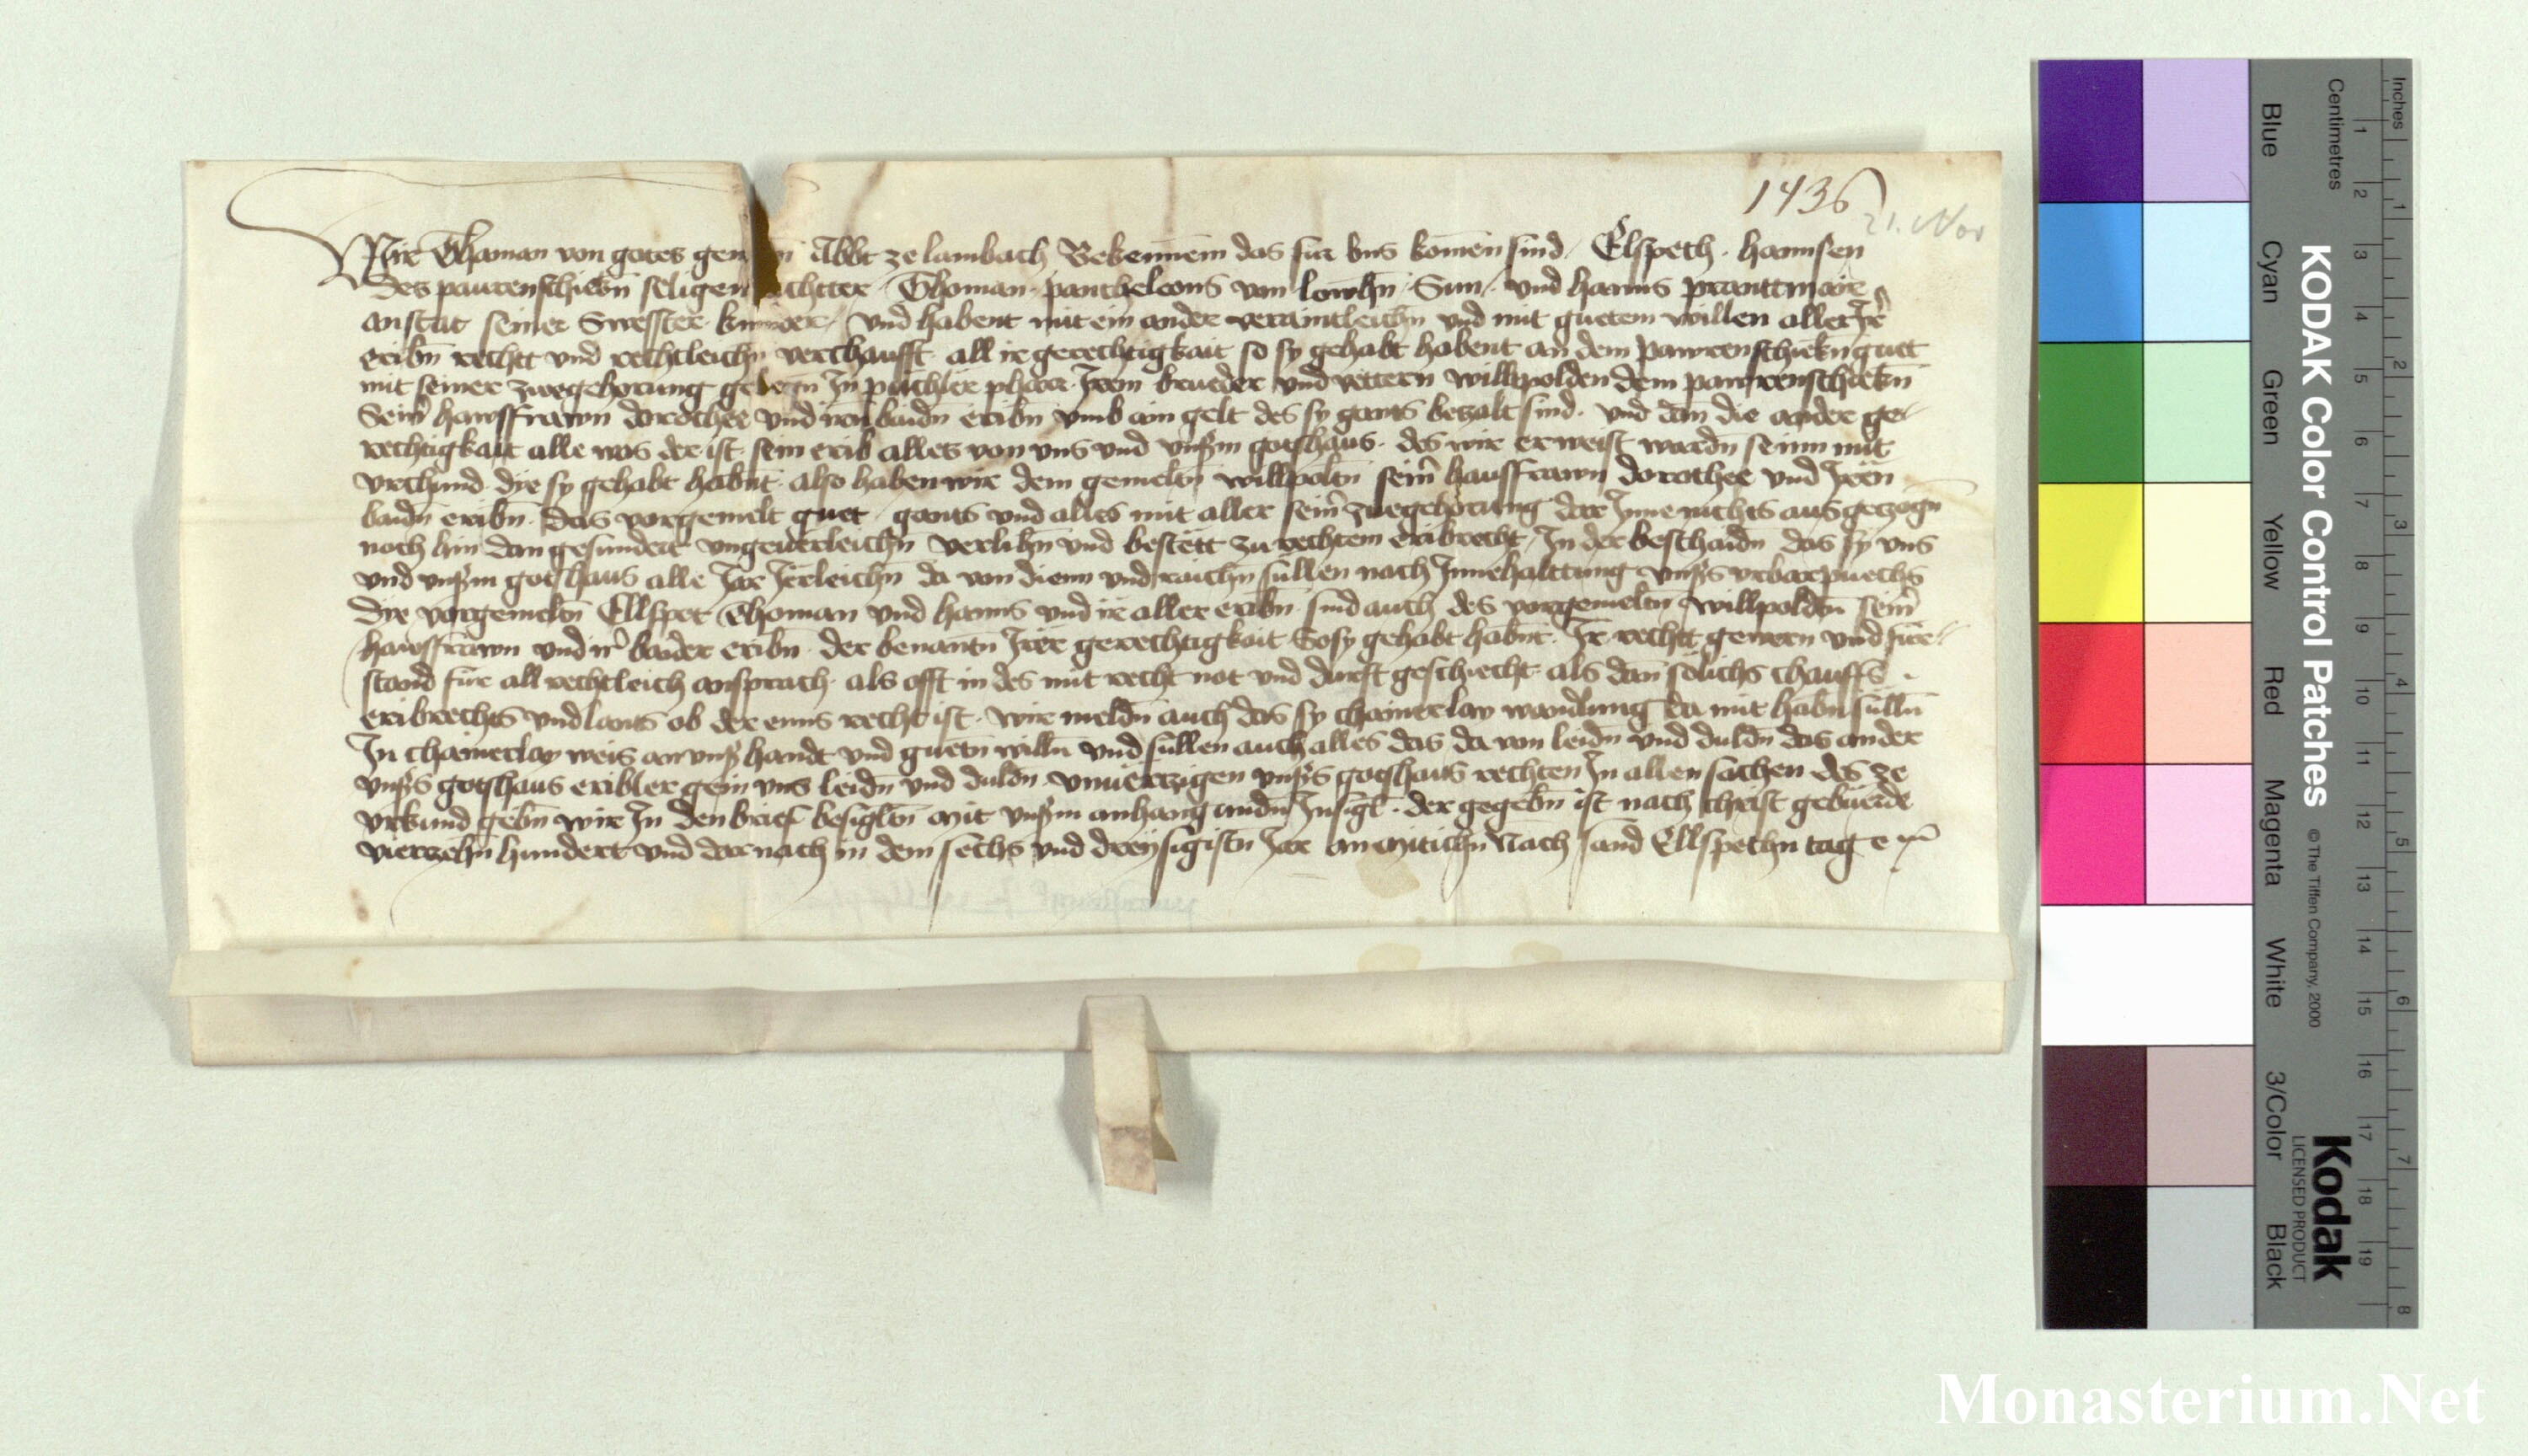 1436
21. Nov
Wir Thoman von gotes gen n Abbt ze lambach Bekennem das für vns komen sind Elspeth hannsen
des paurenschiekn seligen chtter Thoman pantheleons von Sun und hanns pranttmair
anstat seiner Swester kinder vnd habent mit ein ander veraintleichn vnd mit guetem willen aller Jr
eribn rechtt vnd rechtleichn verchaufft all ir gerechtigkait so sy gehabt habent an dem pawrenschiekn guet
mit seiner zuegehorung gelegn Jn pharr Jrem brueder vnd vettern willpolden dem pawrenschiekn
Seinr hawsfrawn dorothee vnd irn baidn eribn vmb ain gelt des sy gants betzalt sind vnd dan die ander ge
rechtigkait alle was der ist sein erib alles von vns vnd vnsm gotshaus des wir erweist wardn seinn mit
vrchund die sy gehabt habnt also haben wir dem gemeltn willpoltn seinr hausfrawn dorothee vnd Jren
baidn eribn das vorgemelt guet gants vnd alles mit aller seinr zuegehorung dar Jnne nichts ausgetzogn
noch hin dan gesundert vngeuerleichn verlihn vnd bestett zu rechtem eribrecht Jn der beschaidn das sy vns
vnd vnsm gotshaus alle Jar Jerleichn da von dienn vnd raichn sullen nach Jnnehalttung vnsrs vrbarpuechs
die vorgemeltn Ellspet Thoman vnd hanns vnd ir aller eribn sind auch des vorgemeltn willpoldtn seinr
hawsfrawn vnd ir baider eribn der benantn Jrer gerechtigkait So sy gehabt habnt Jr rechtt gewern vnd für
stand für all rechtleich ansprach als offt in des mit recht not vnd durft geschiecht als dan solichs chauffs
eribrechts vnd lants ob der enns recht ist wir meldn auch das sy chainerlay wandlung da mit habn sülln
Jn chainerlay weis an vnsr handt vnd guetn willn vnd sullen auch alles das da von leidn vnd duldn das ander
vnsrs gotshaus eribler gein vns leidn vnd duldn vnuertzigen vnsrs gotshaus rechten Jn allen sachen des ze
vrkund gebn wir Jn den brief besigltn mit vnsm anhangundn Jnsigl der gegebn ist nach christ gebuerde
vierzehn hundert vnd dar nach in dem sechs vnd dreysigistn Jar an mitichn Nach sand Ellspethn tag
Inches
Centimetres
1 2 3 4 5 6 7 8
1 2 3 4 5 6 7 8 9 10 11 12 13 14 15 16 17 18 19
KODAK Color Control Patches
© The Tiffen Company, 2000
Kodak
LICENSED PRODUCT
Blue
Cyan
Green
Yellow
Red
Magenta
White
3/Color
Black
Monasterium.Net